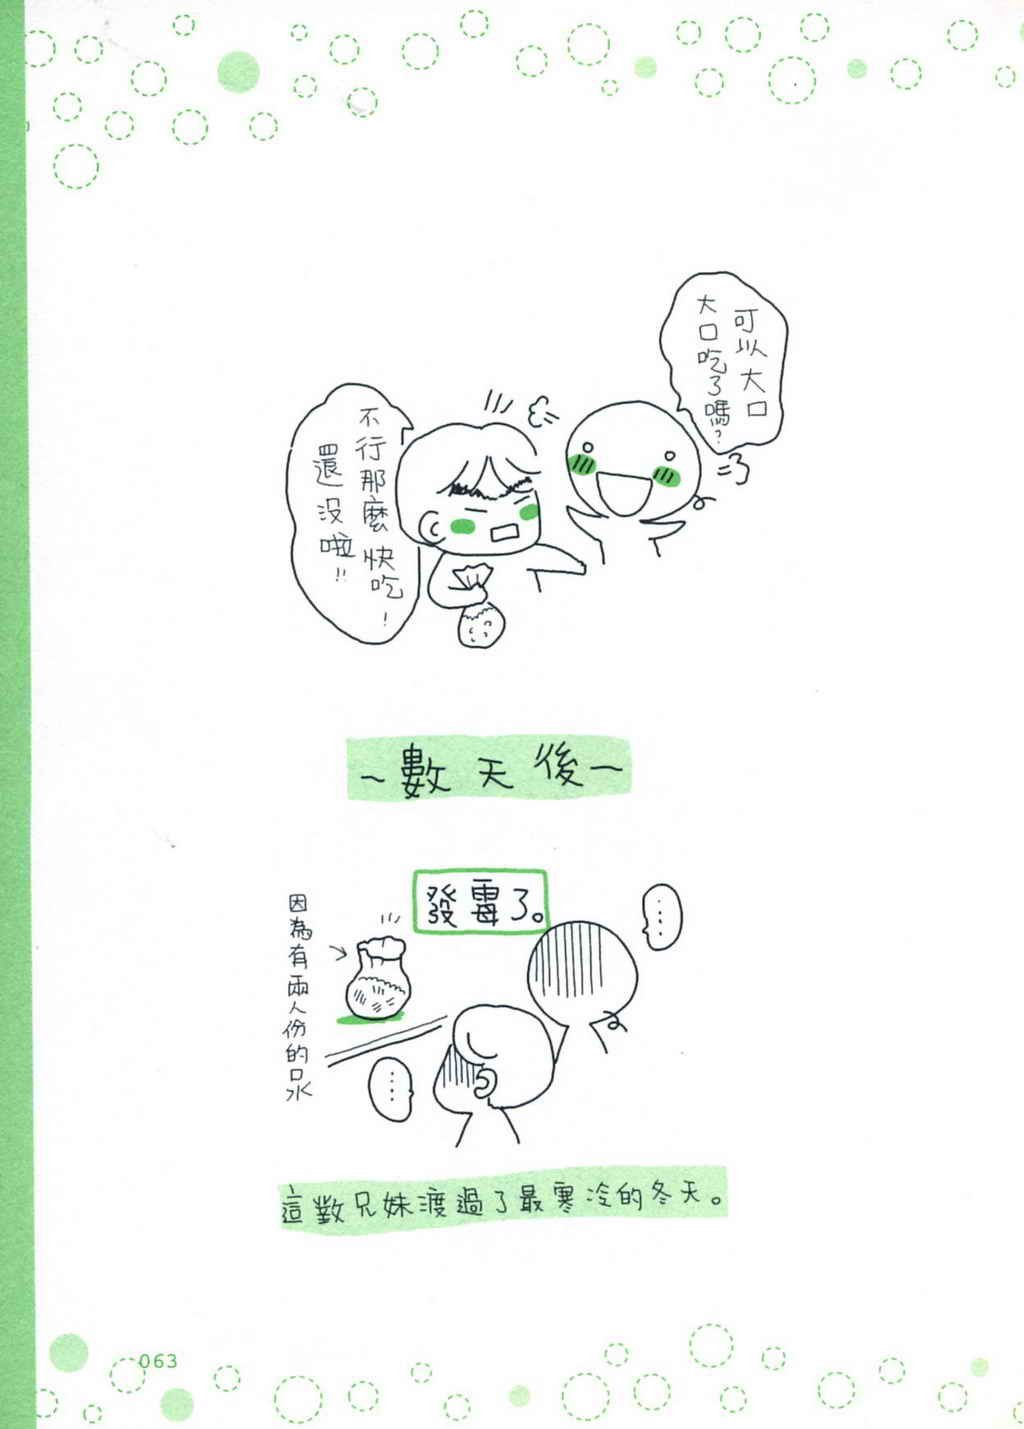 可以大口
大口吃了嗎?
不行那麼快吃!
還沒啦!!
~數天後~
發霉了。
因為有兩人份的口水
……
……
這對兄妹渡過了最寒冷的冬天。
063